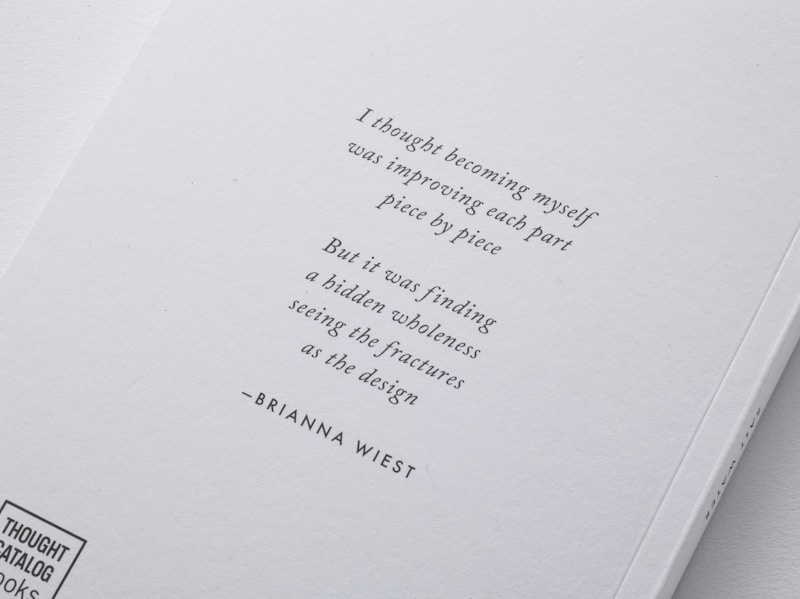 I thought becoming myself
was improving each part
piece by piece
But it was finding
a hidden wholeness
seeing the fractures
as the design
—BRIANNA WIEST
THOUGHT
CATALOG
ooks
SALT WATER